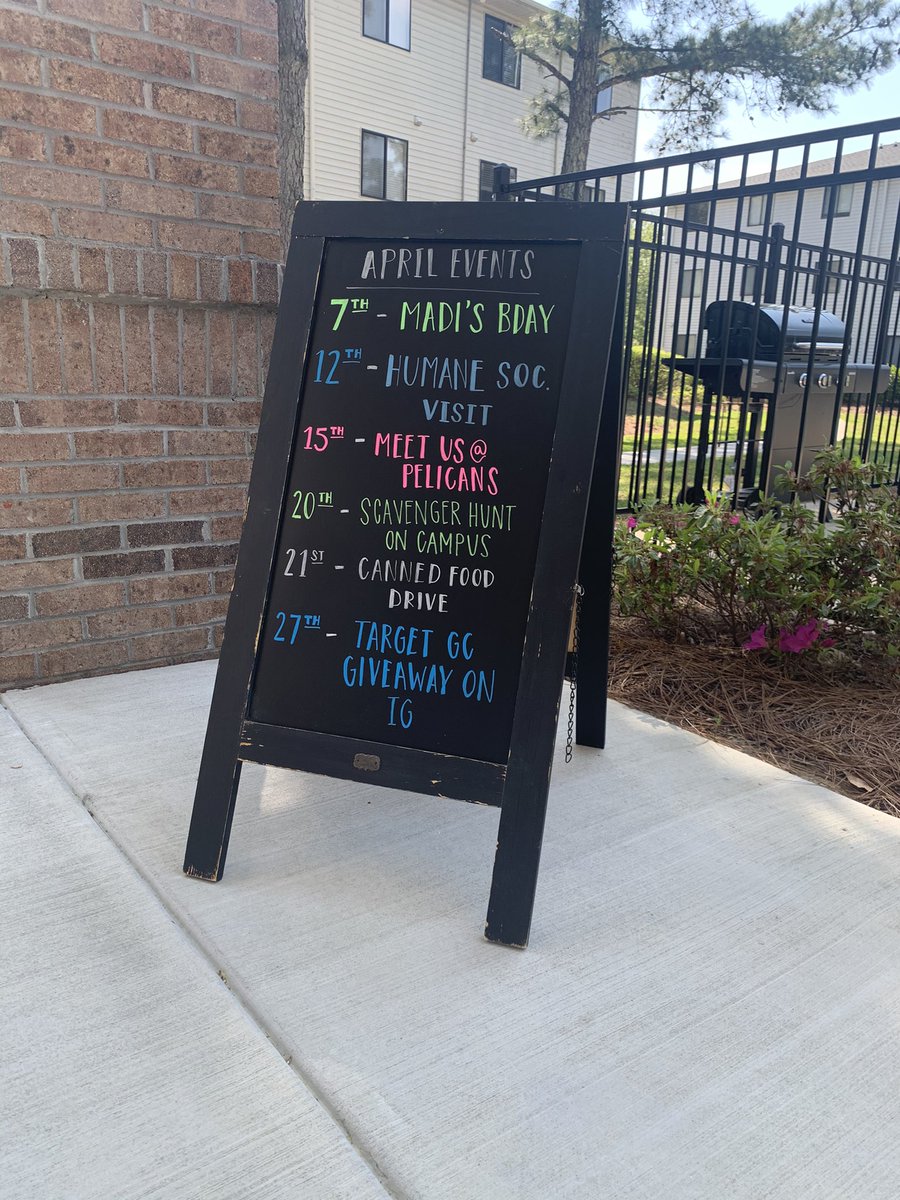 APRIL EVENTS
7TH - MADI'S BDAY
12TH - HUMANE SOC.
VISIT
15TH - MEET US @
PELICANS
20TH - SCAVENGER HUNT
ON CAMPUS
21ST - CANNED FOOD
DRIVE
27TH - TARGET GC
GIVEAWAY ON
IG